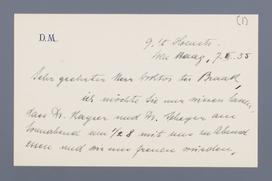 (1)
D.M.
den Haag, 7. 35
Sehr geehrter Herr Doktor ter Braak,
ich möchte Sie nur wissen lassen,
dass Dr. Kayser und Dr. am
Sonnabend um 1/2 8 mit uns zu Abend
essen und wir uns freuen würden,